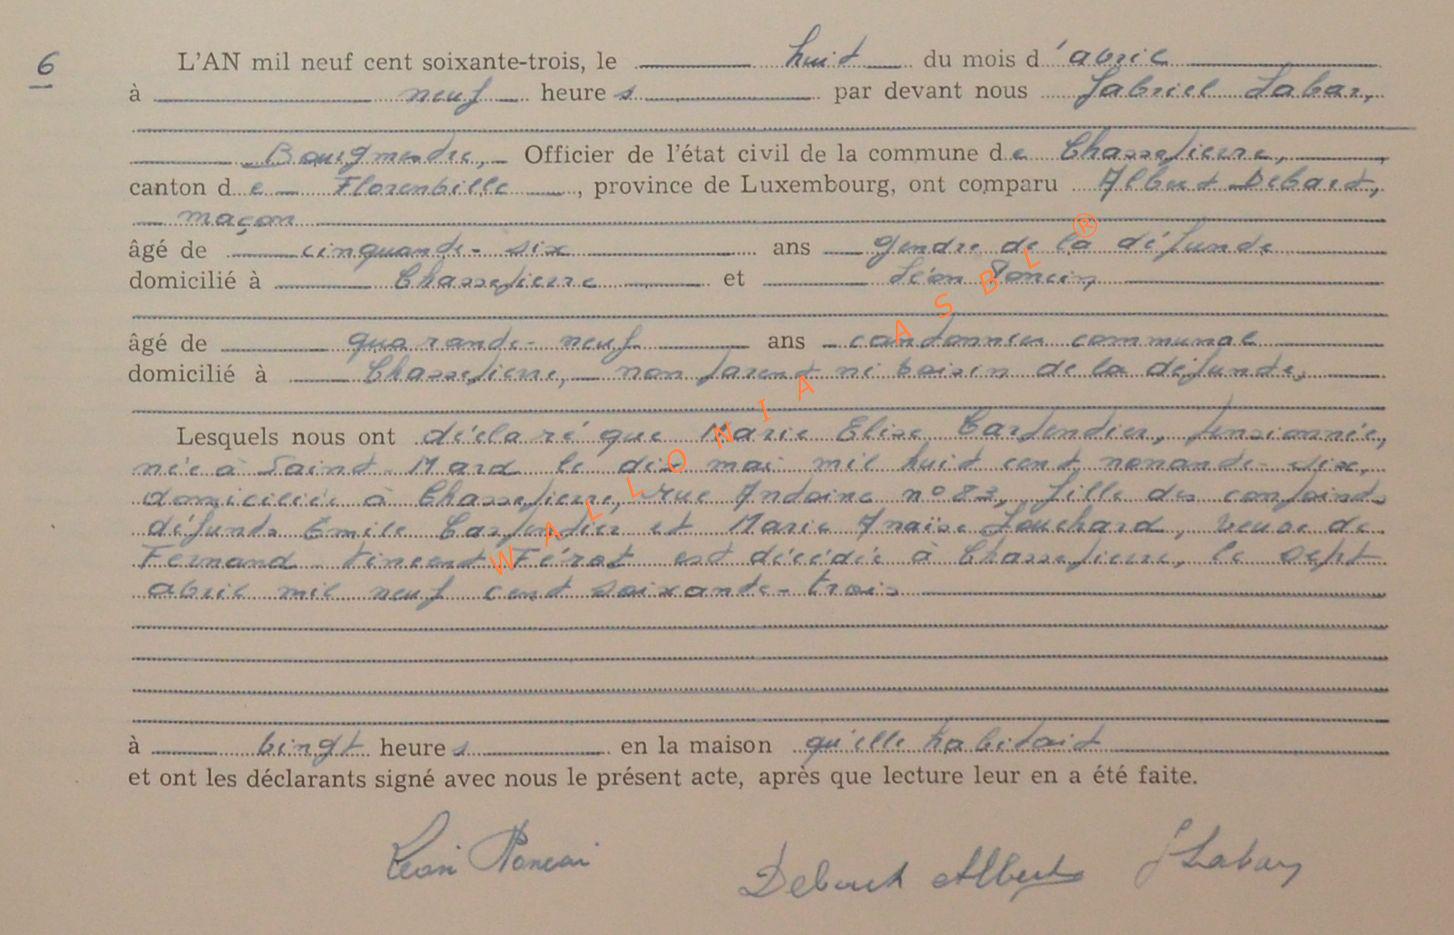 6
L'AN mil neuf cent soixante-trois, le huit du mois d'avril
à neuf heures par devant nous Gabriel Labar,
Bourgmestre, Officier de l'état civil de la commune de Chassepierre,
canton de Florenville, province de Luxembourg, ont comparu Albert Debart,
maçon
âgé de cinquante-six ans gendre de la défunte
domicilié à Chassepierre et Léon Poncin,
âgé de quarante-neuf ans cantonnier communal
domicilié à Chassepierre, non parent ni voisin de la défunte,
Lesquels nous ont déclaré que Marie Elise Carpentier, pensionnée,
née à Saint-Mard le dix mai mil huit cent nonante-six,
domiciliée à Chassepierre, rue Antoine n° 83, fille des conjoints
défunts Emile Carpentier et Marie Anaïse Louchard, veuve de
Fernand Vincent Férot est décédée à Chassepierre, le sept
avril mil neuf cent soixante-trois
à vingt heures en la maison qu'elle habitait
et ont les déclarants signé avec nous le présent acte, après que lecture leur en a été faite.
Léon Poncin Debart Albert G Labar
WALLONIA ASBL ®